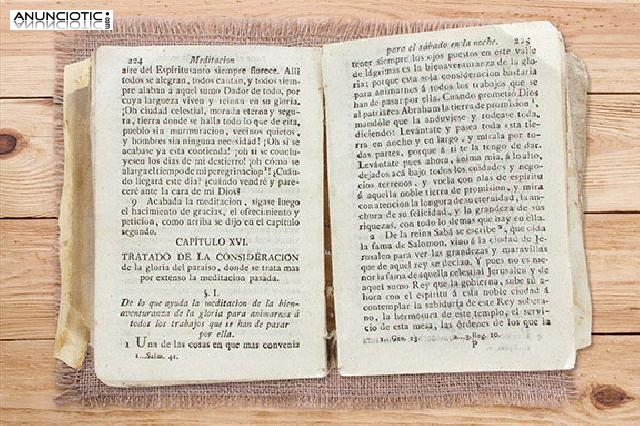 ANUNCIOTIC.com
224 Meditacion
aire del Espíritusanto siempre florece. Allí
todos se alegran, todos cantan, y todos siem-
pre alaban a aquel sumo Dador de todo, por
cuya largueza viven y reinan en su gloria.
¡Oh ciudad celestial, morada eterna y segu-
ra, tierra donde se halla todo lo que deleita,
pueblo sin murmuracion, vecinos quietos,
y hombres sin ninguna necesidad! ¡Oh si se
acabase ya esta contienda! ¡oh si se conclu-
yesen los dias de mi destierro! ¡oh cómo se
alarga el tiempo de mi peregrinacion! ¡Cuán-
do llegará este dia? ¡cuándo vendré y pare-
ceré ante la cara de mi Dios
9 Acabada la meditacion, sígase luego
el hacimiento de gracias, el ofrecimiento y
peticion, como arriba se dijo en el capítulo
segundo.
CAPÍTULO XVI.
TRATADO DE LA CONSIDERACION
de la gloria del paraiso, donde se trata mas
por extenso la meditacion pasada.
§. I.
De lo que ayuda la meditacion de la bien-
aventuranza de la gloria para animarnos á
todos los trabajos que se han de pasar
por ella.
1 Una de las cosas en que mas convenia
1...Salm. 41.
para el sábado en la noche. 225
tener siempre los ojos puestos en este valle
de lágrimas es la bienaventuranza de la glo-
ria; porque esta sola consideracion bastaria
para animarnos á todos los trabajos que se
han de pasar por ella. Cuando prometió Dios
al patriarca Abraham la tierra de promision¹,
mandóle que la anduviese y rodease toda,
diciendo: Levántate y pasea toda esta tier-
ra en ancho y en largo, y mírala por to-
das partes, porque á tí te la tengo de dar.
Levántate pues ahora, ánima mia, á lo alto,
dejados acá bajo todos los cuidados y nego-
cios terrenos, y vuela con alas de espíritu
á aquella noble tierra de promision, y mira
con atencion la longura de su eternidad, la an-
chura de su felicidad, y la grandeza de sus
riquezas, con todo lo demas que hay en ella.
2 De la reina Sabá se escribe², que oida
la fama de Salomon, vino á la ciudad de Je-
rusalen para ver las grandezas y maravillas
que de aquel rey se decian. Y pues no es me-
nor la fama de aquella celestial Jerusalen y de
aquel sumo Rey que la gobierna, sube tú a-
hora con el espíritu á esta noble ciudad á
contemplar la sabiduría de este Rey sobera-
no, la hermosura de este templo, el servi-
cio de esta mesa, las órdenes de los que la
1...Gen. 13. 2...3. Reg. 10.
P